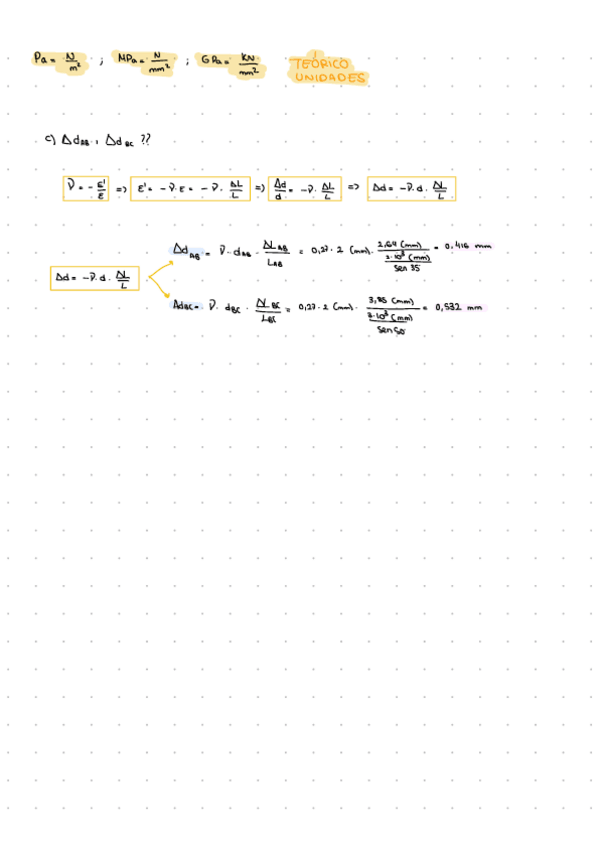 Pa = N/m² ; MPa = N/mm² ; GPa = KN/mm² TEÓRICO UNIDADES
c) Δd_AB , Δd_BC ??
ν = - ε'/ε => ε' = - ν · ε = - ν · ΔL/L => Δd/d = - ν · ΔL/L => Δd = - ν · d · ΔL/L
Δd_AB = ν · d_AB · ΔL_AB/L_AB = 0,27 · 2 (mm) · 2,64 (mm)/(2·10³ (mm)/sen 35) = 0,416 mm
Δd = - ν · d · ΔL/L
Δd_BC = ν · d_BC · ΔL_BC/L_BC = 0,27 · 2 (mm) · 3,85 (mm)/(2·10³ (mm)/sen 50) = 0,532 mm